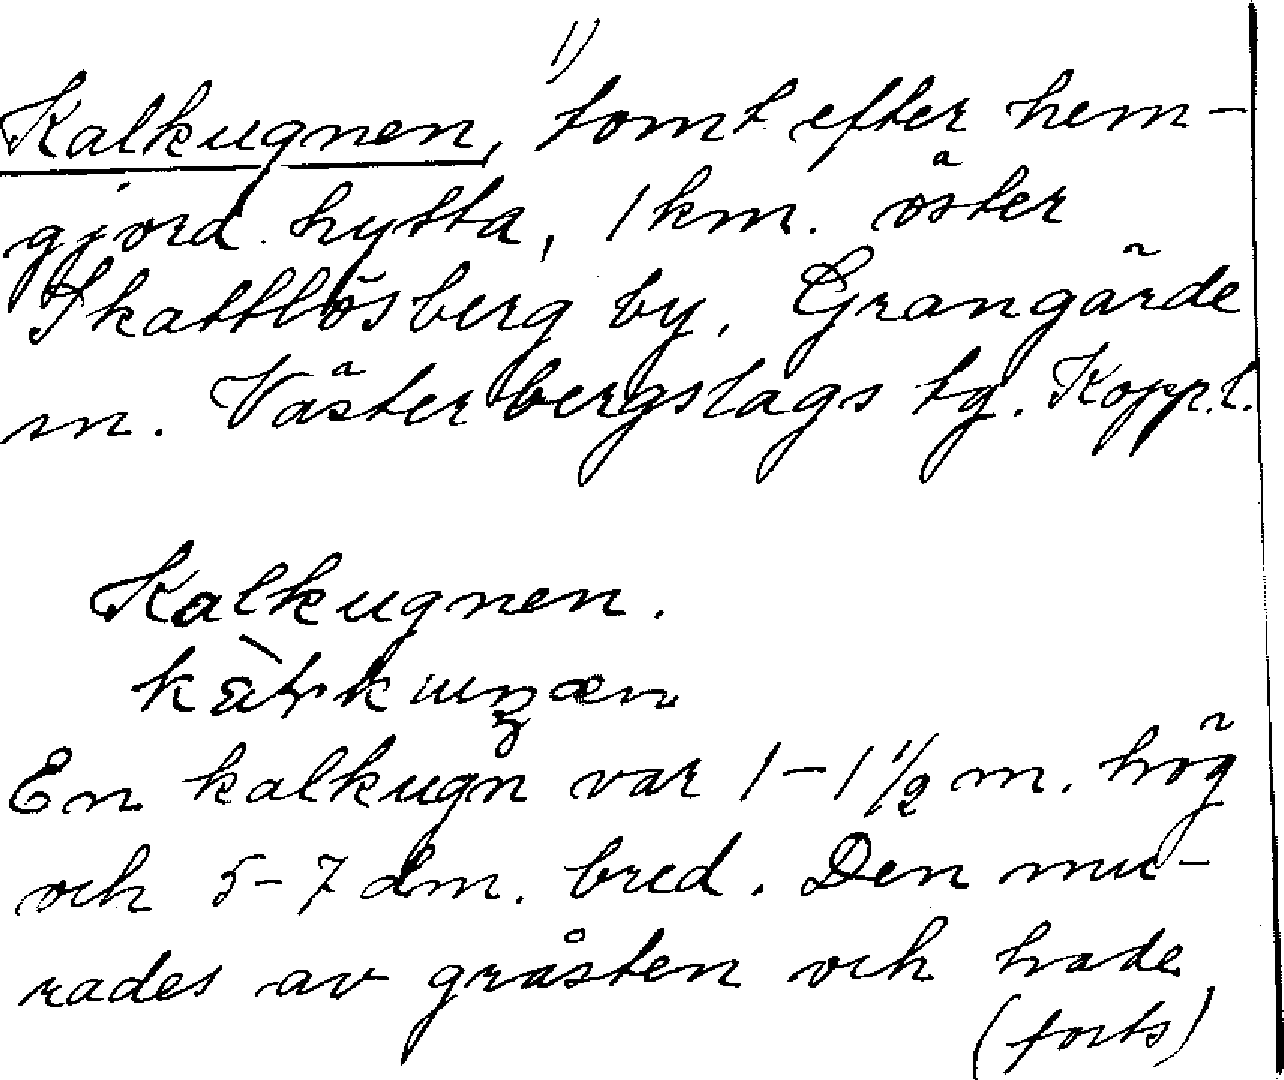 1)
Kalkugnen, tomt efter hem-
gjord hytta, 1 km. öster
Skattlösberg by. Grangärde
m. Västerbergslags tg. Kopp.l.
Kalkugnen.
En kalkugn var 1-1 1/2 m. hög
och 5-7 dm. bred. Den mu-
rades av gråsten och hade
(forts)